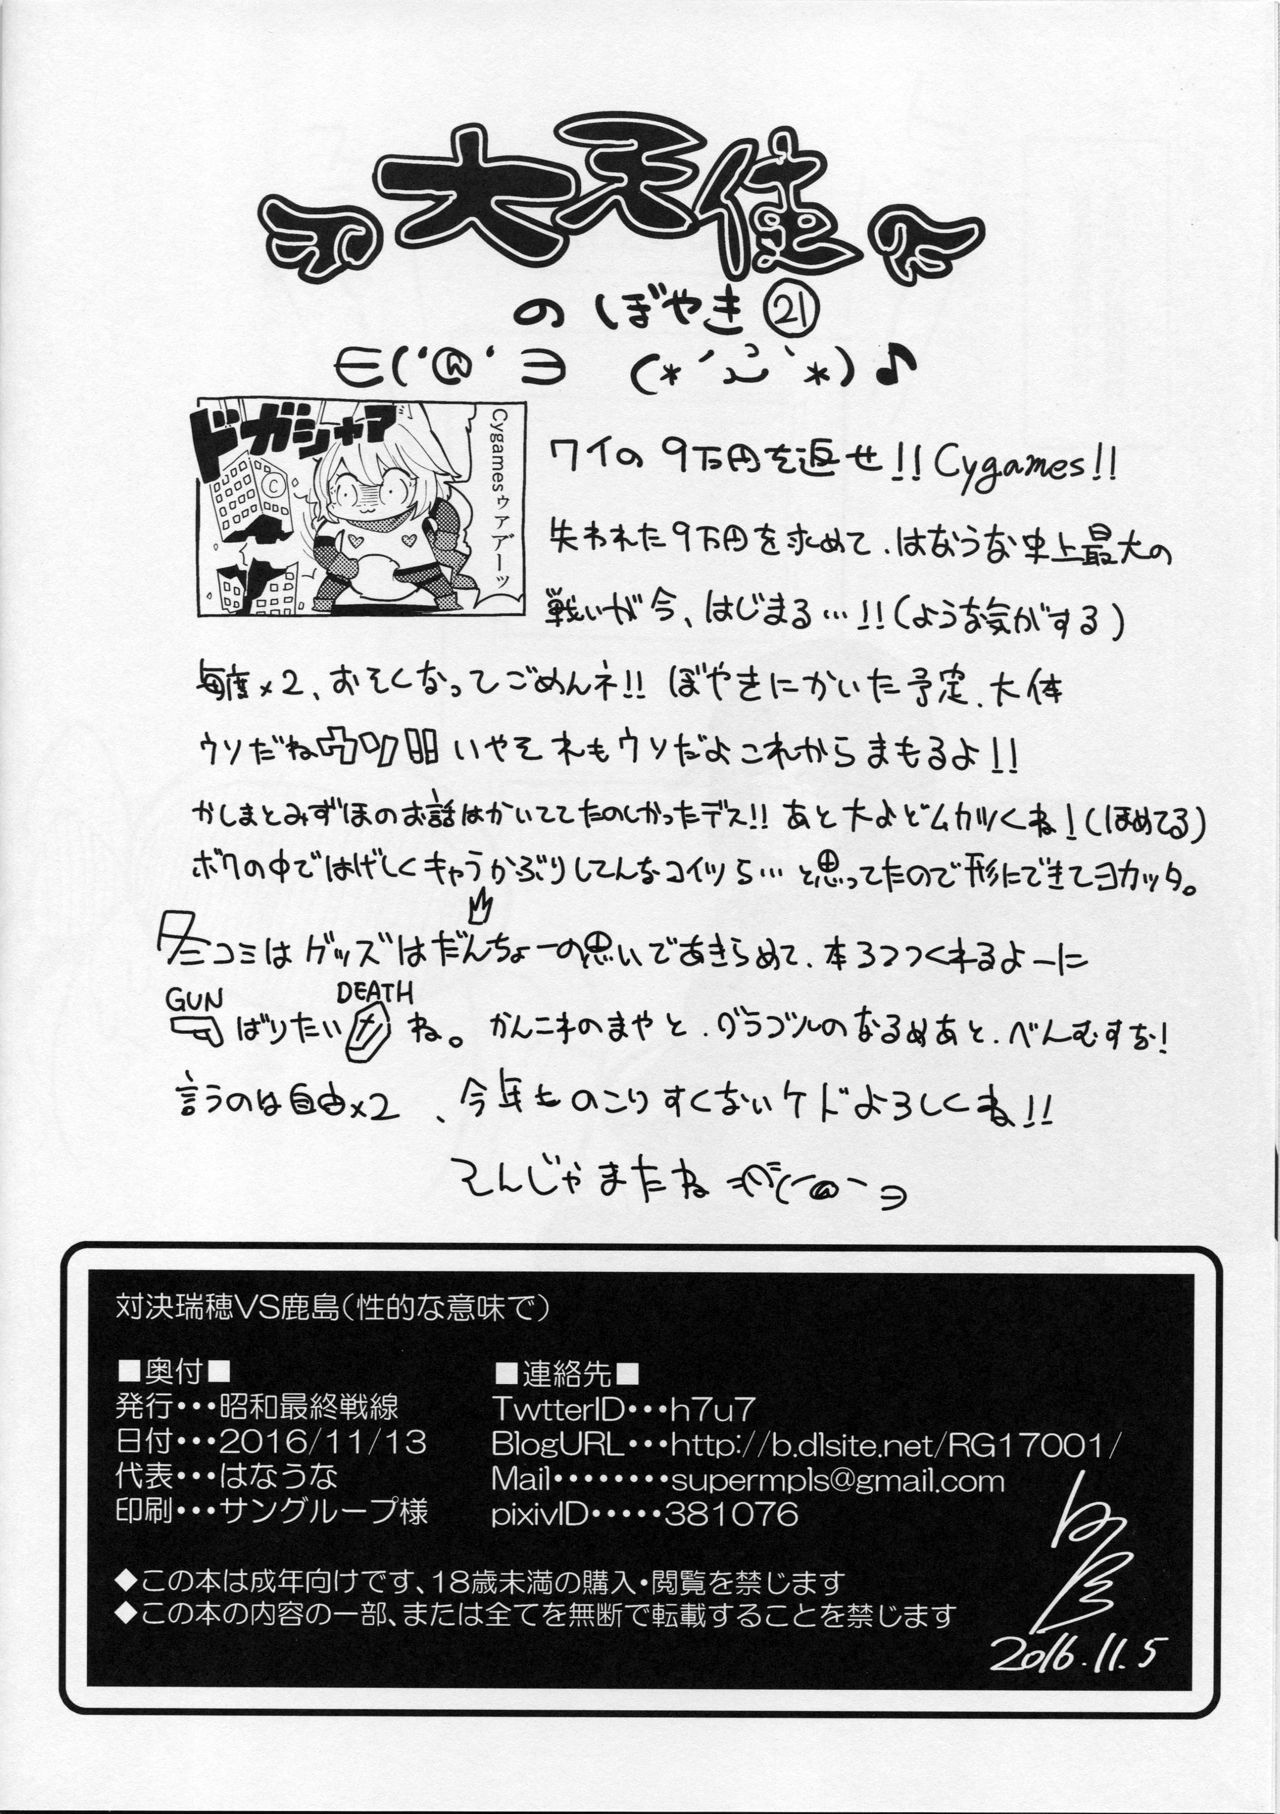 大天使
のぼやき㉑
∈('@' ∋ (*´ ｀*)♪
ドガシャァ
Cygamesゥアアーッ
ワイの9万円を返せ!!Cygames!!
失われた9万円を求めて、はなうな史上最大の
戦いが今、はじまる…!!(ような気がする)
毎度×2、おそくなってごめんネ!!ぼやきにかいた予定、大体
ウソだねウソ!!いやそれもウソだよこれからまもるよ!!
かしまとみずほのお話はかいててたのしかったデス!!あと大よどムカツくね!(ほめてる)
ボクの中ではげしくキャラかぶりしてんなコイツら…と思ってたので形にできてヨカッタ。
冬コミはグッズはだんちょーの思いであきらめて、本3つつくれるよーに
GUN DEATH
ばりたい ね。かんこれのまやと、グラブルのなるめあと、べんむすな!
言うのは自由×2、今年ものこりすくないケドよろしくね!!
そんじゃまたね
対決瑞穂VS鹿島(性的な意味で)
■奥付■
発行・・・昭和最終戦線
日付・・・2016/11/13
代表・・・はなうな
印刷・・・サングループ様
■連絡先■
TwtterID・・・h7u7
BlogURL・・・http://b.dlsite.net/RG17001/
Mail・・・・・・・・supermpls@gmail.com
pixivID・・・・・381076
◆この本は成年向けです、18歳未満の購入・閲覧を禁じます
◆この本の内容の一部、または全てを無断で転載することを禁じます
2016.11.5